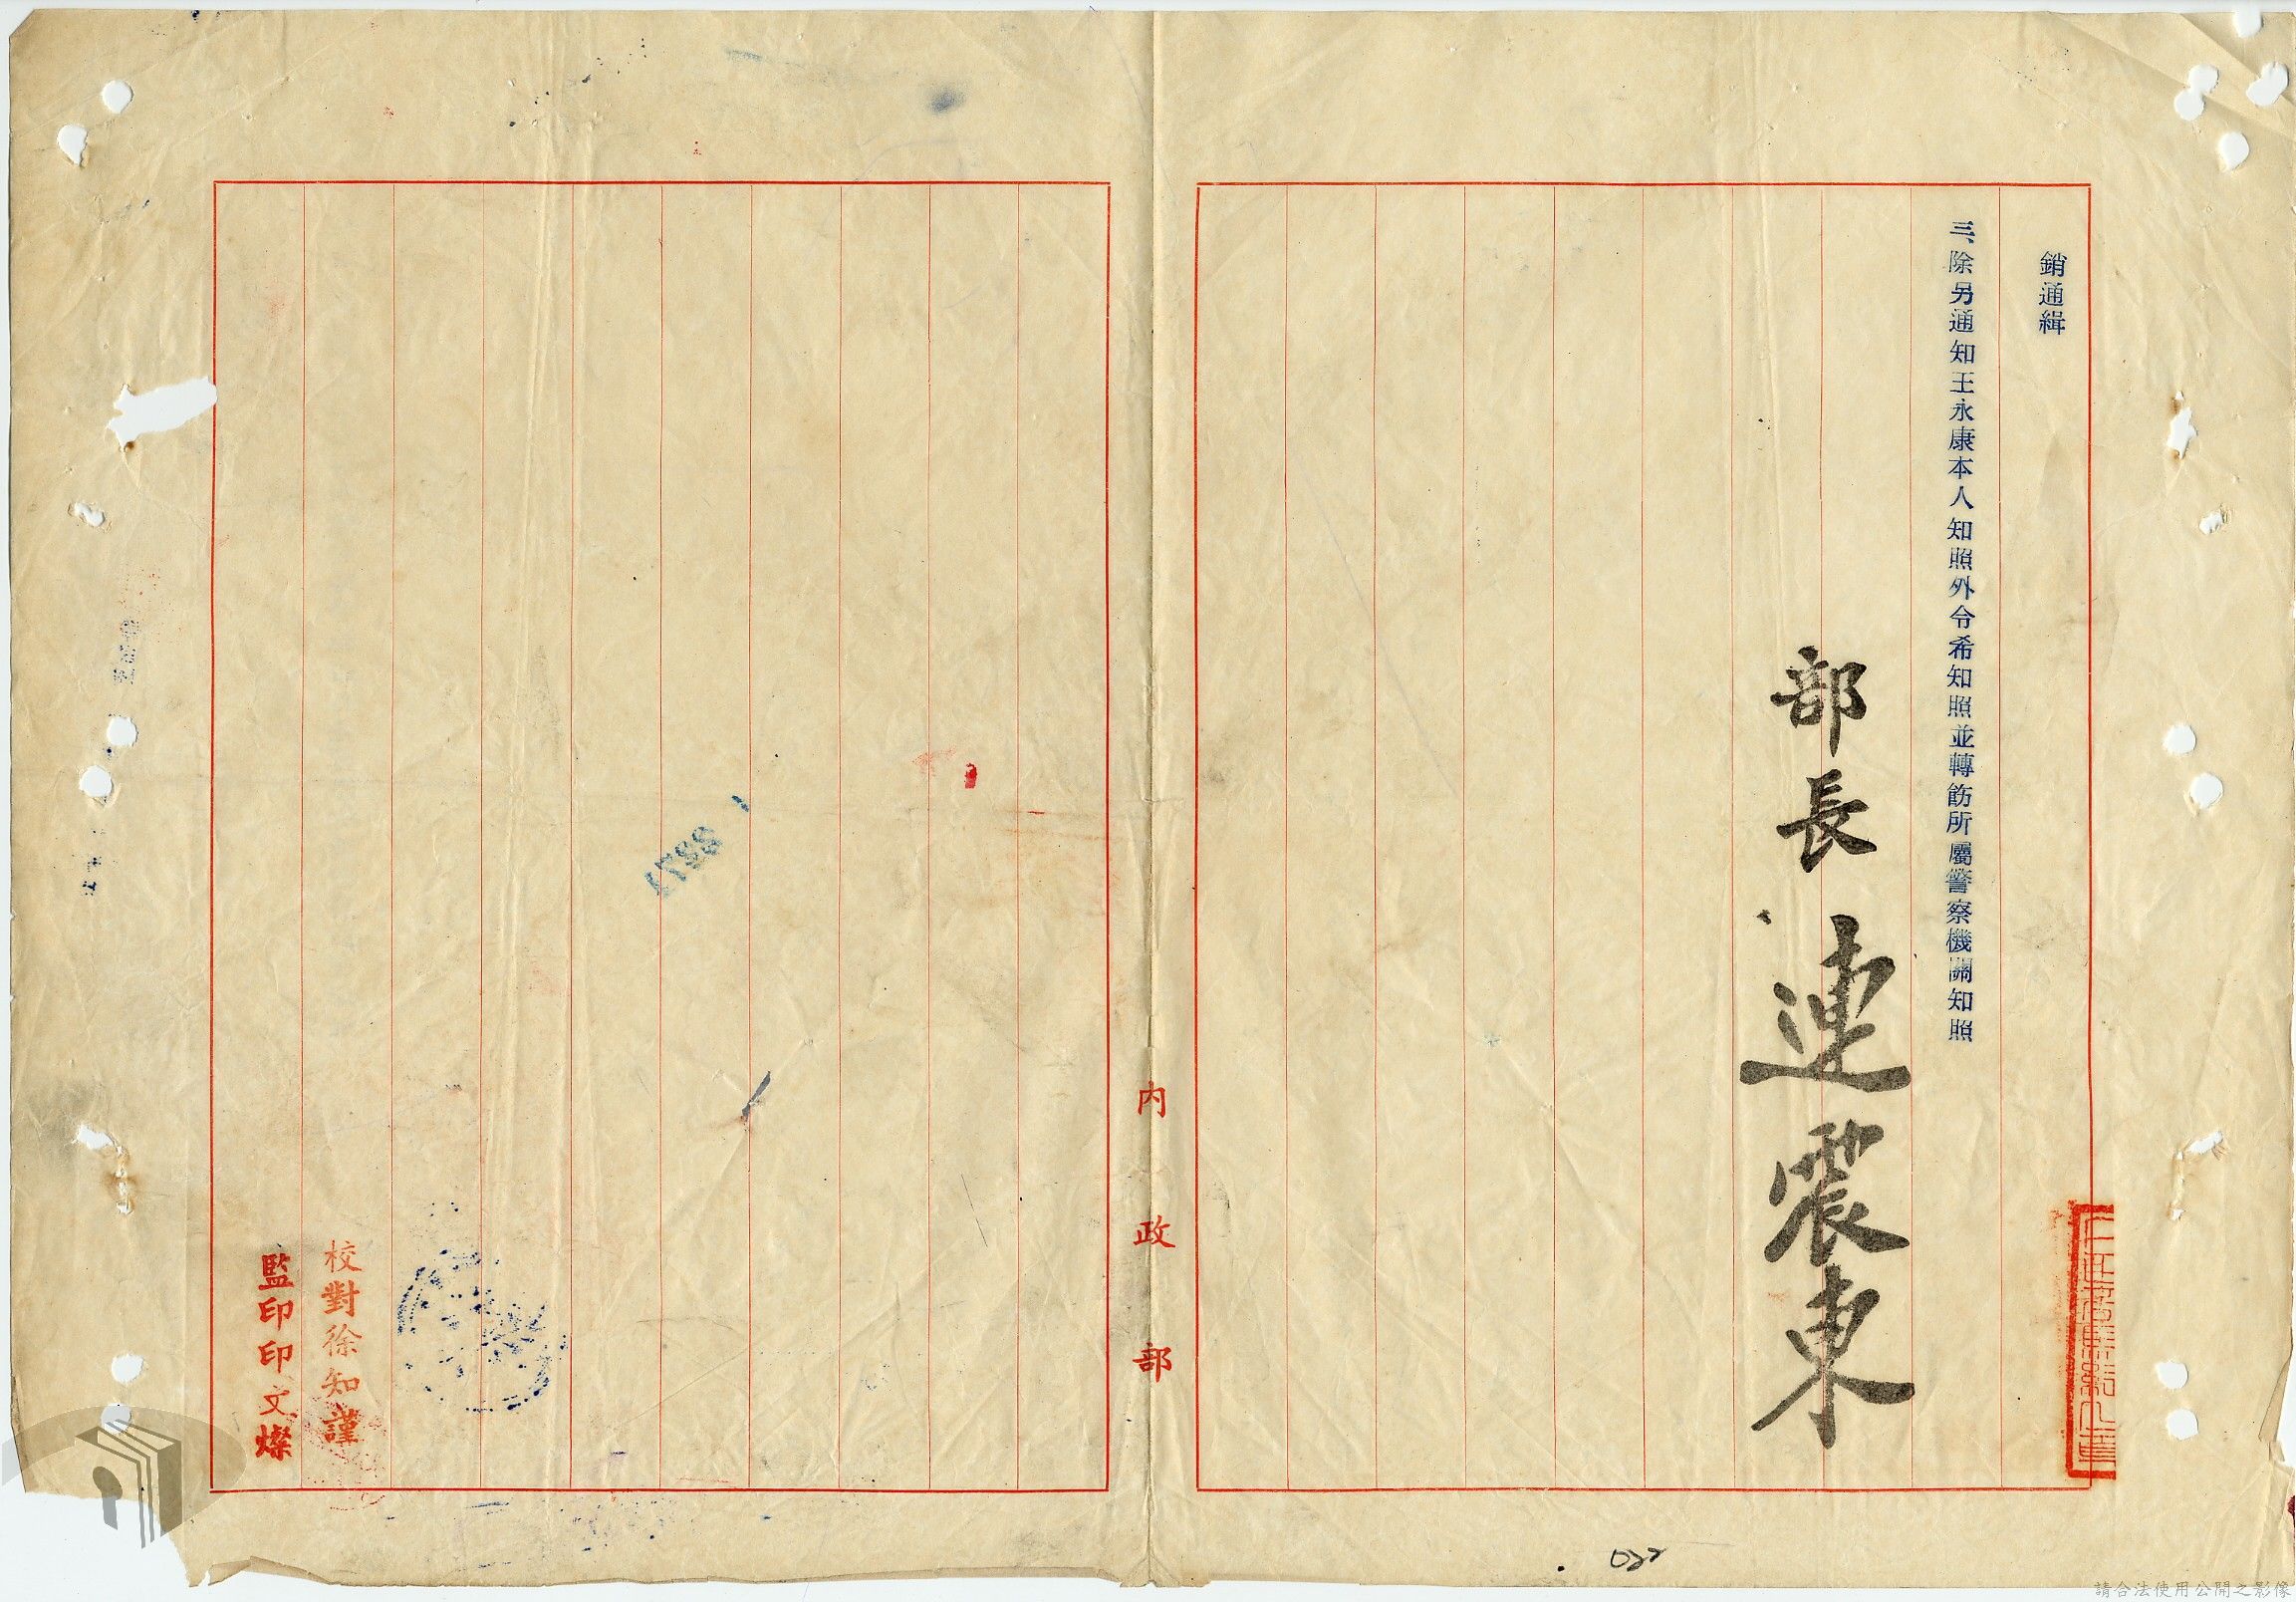 銷通緝
三、除另通知王永康本人知照外令希知照並轉飭所屬警察機關知照
部長連震東
內政部
校對徐知謹
監印印文燦
022
請合法使用公開之影像